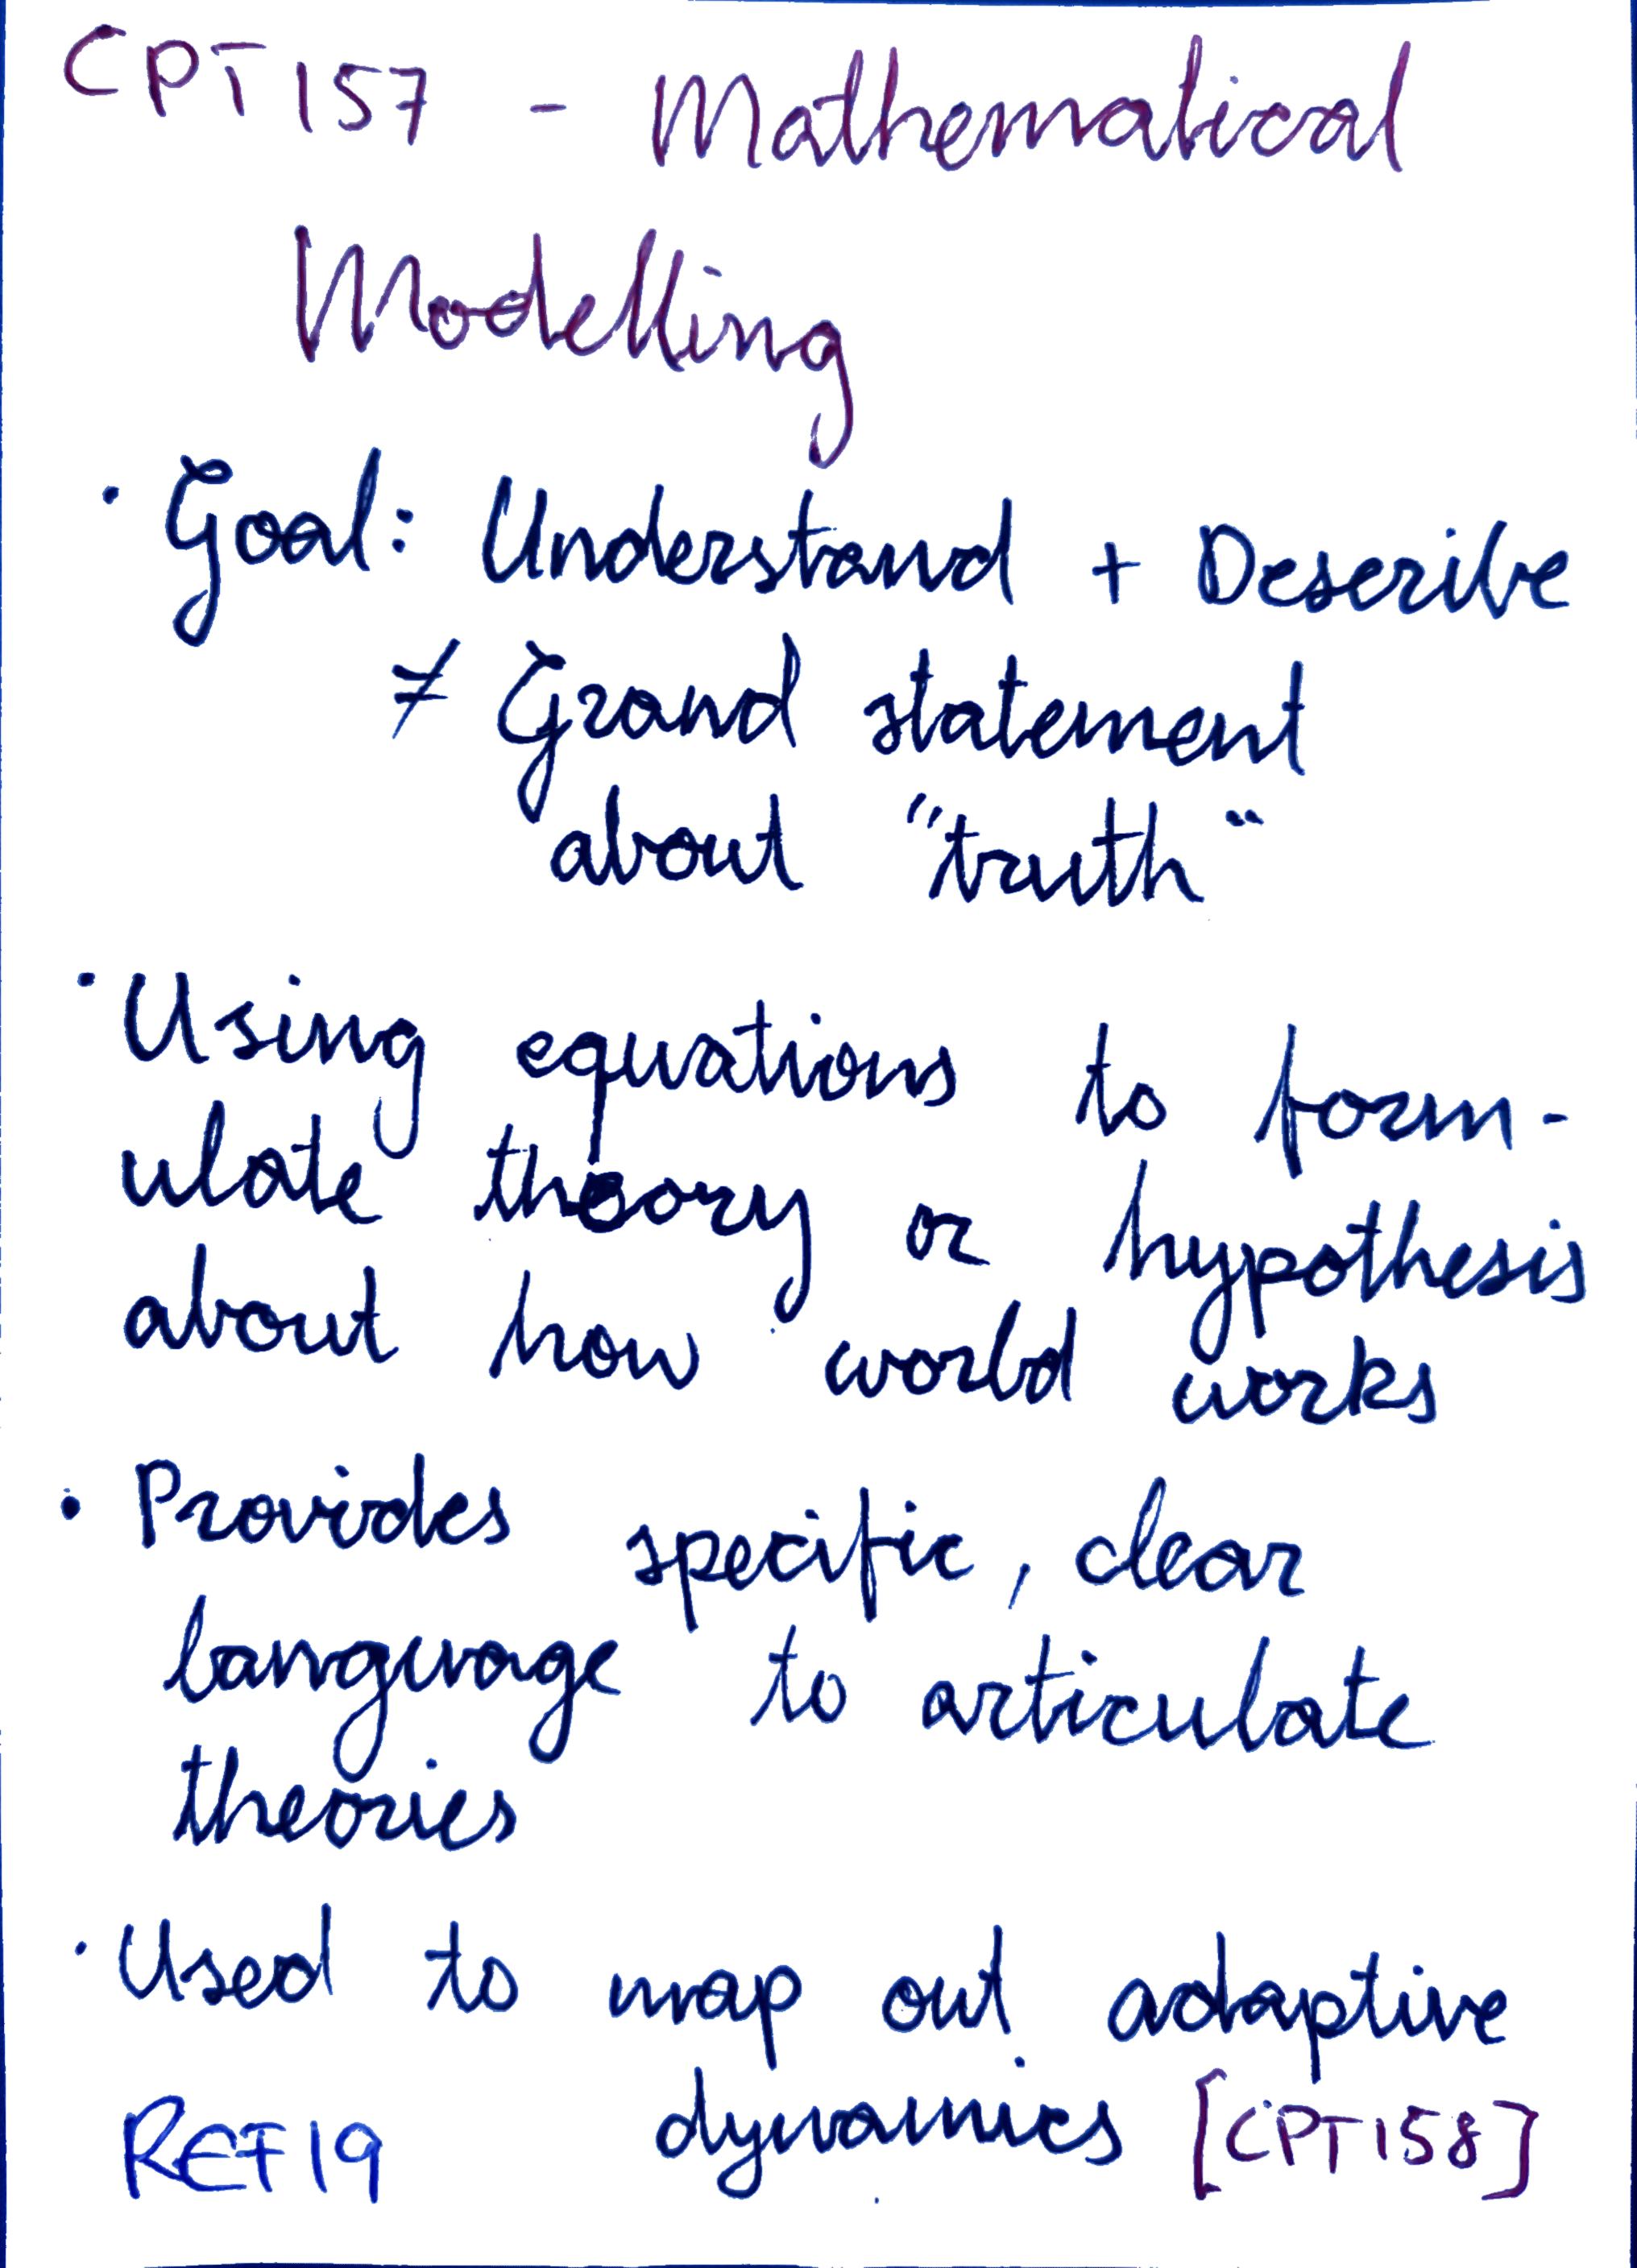 CPT157 - Mathematical
Modelling
· Goal: Understand + Describe
≠ Grand statement
about "truth"
· Using equations to form-
ulate theory or hypothesis
about how world works
· Provides specific, clear
language to articulate
theories
· Used to map out adaptive
dynamics [CPT158]
REF19